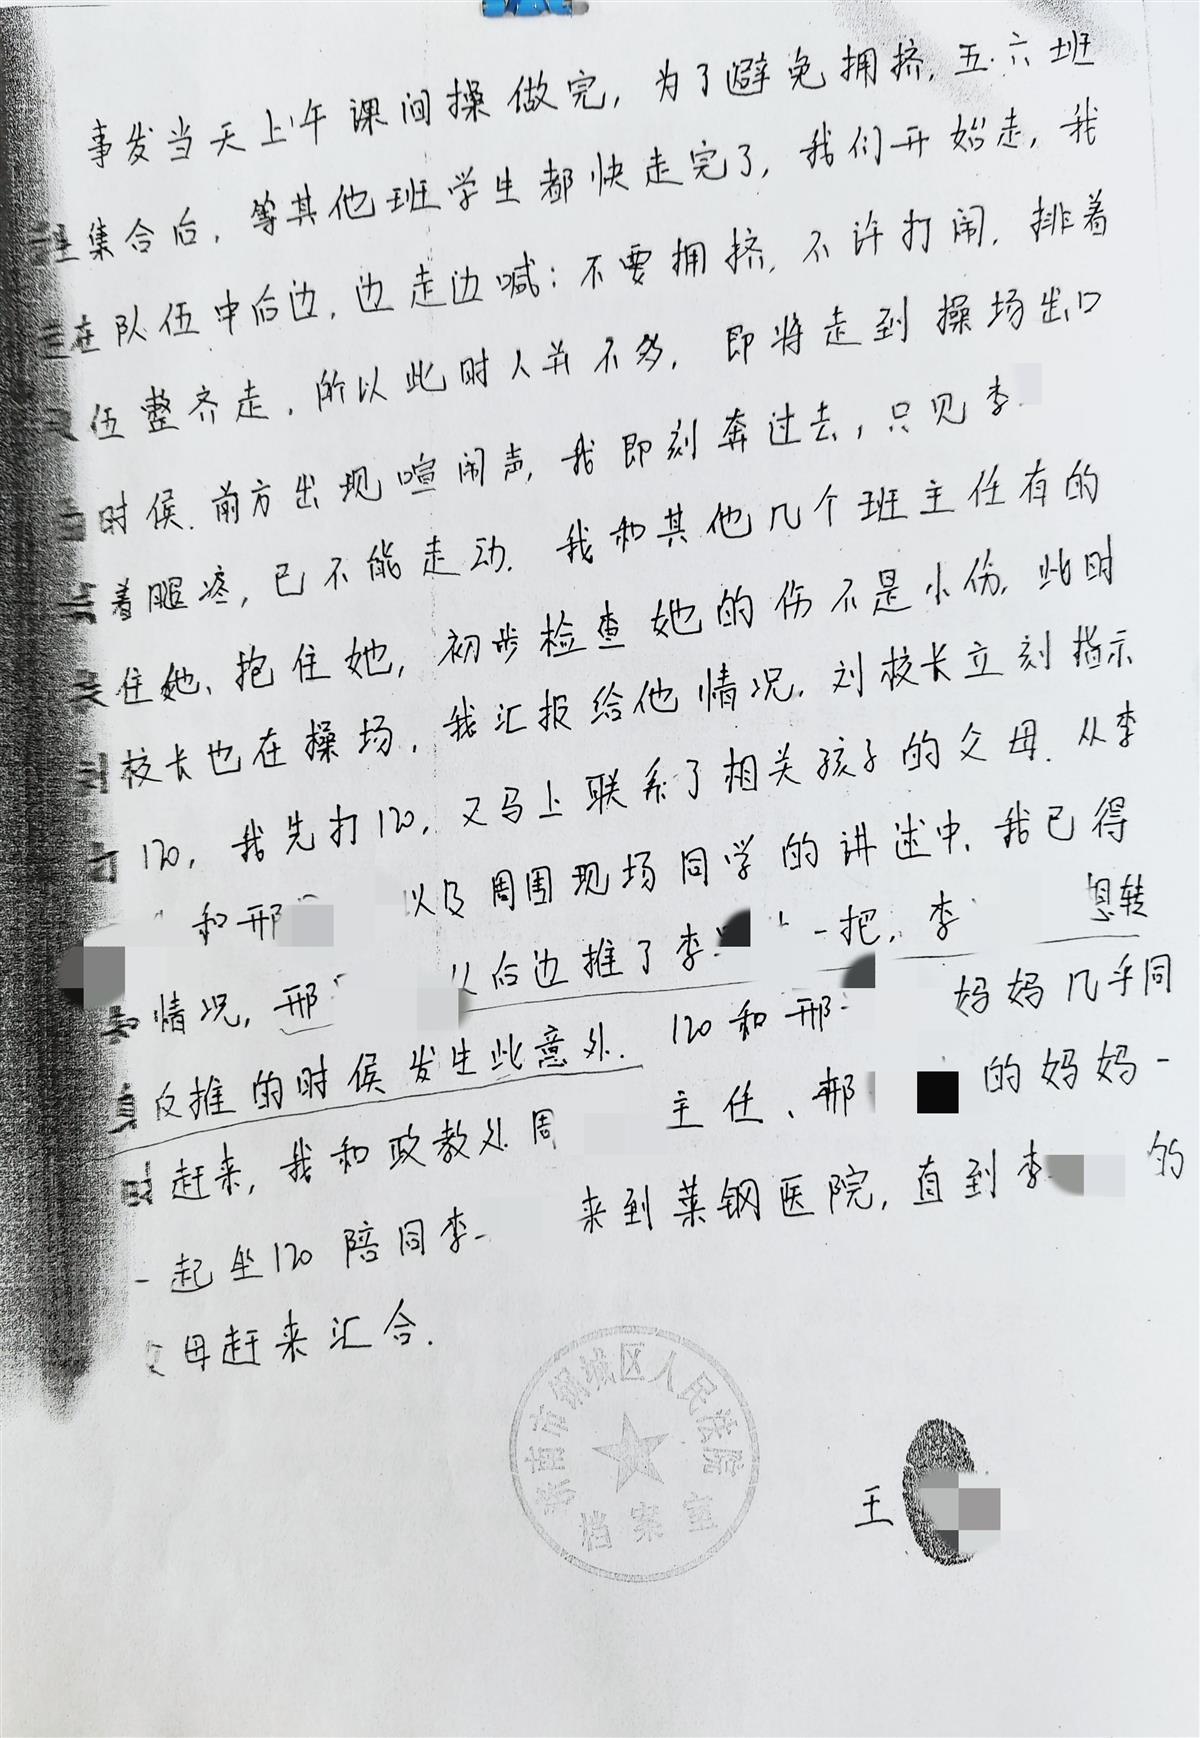 事发当天上午课间操做完，为了避免拥挤，五.六班
集合后，等其他班学生都快走完了，我们开始走，我
走在队伍中后边，边走边喊：不要拥挤，不许打闹，排着
队伍整齐走，所以此时人并不多，即将走到操场出口
的时候，前方出现喧闹声，我即刻奔过去，只见李
着腿疼，已不能走动。我和其他几个班主任有的
扶住她、抱住她，初步检查她的伤不是小伤，此时
刘校长也在操场，我汇报给他情况，刘校长立刻指示
打120，我先打120，又马上联系了相关孩子的父母．从李
和邢 以及周围现场同学的讲述中，我已得
知情况，邢 从后边推了李 一把，李 想转
身反推的时候发生此意外．120和邢 妈妈几乎同
时赶来，我和政教处周 主任、邢 的妈妈一
一起坐120陪同李 来到莱钢医院，直到李 的
父母赶来汇合．
济南市钢城区人民法院
档案室
王